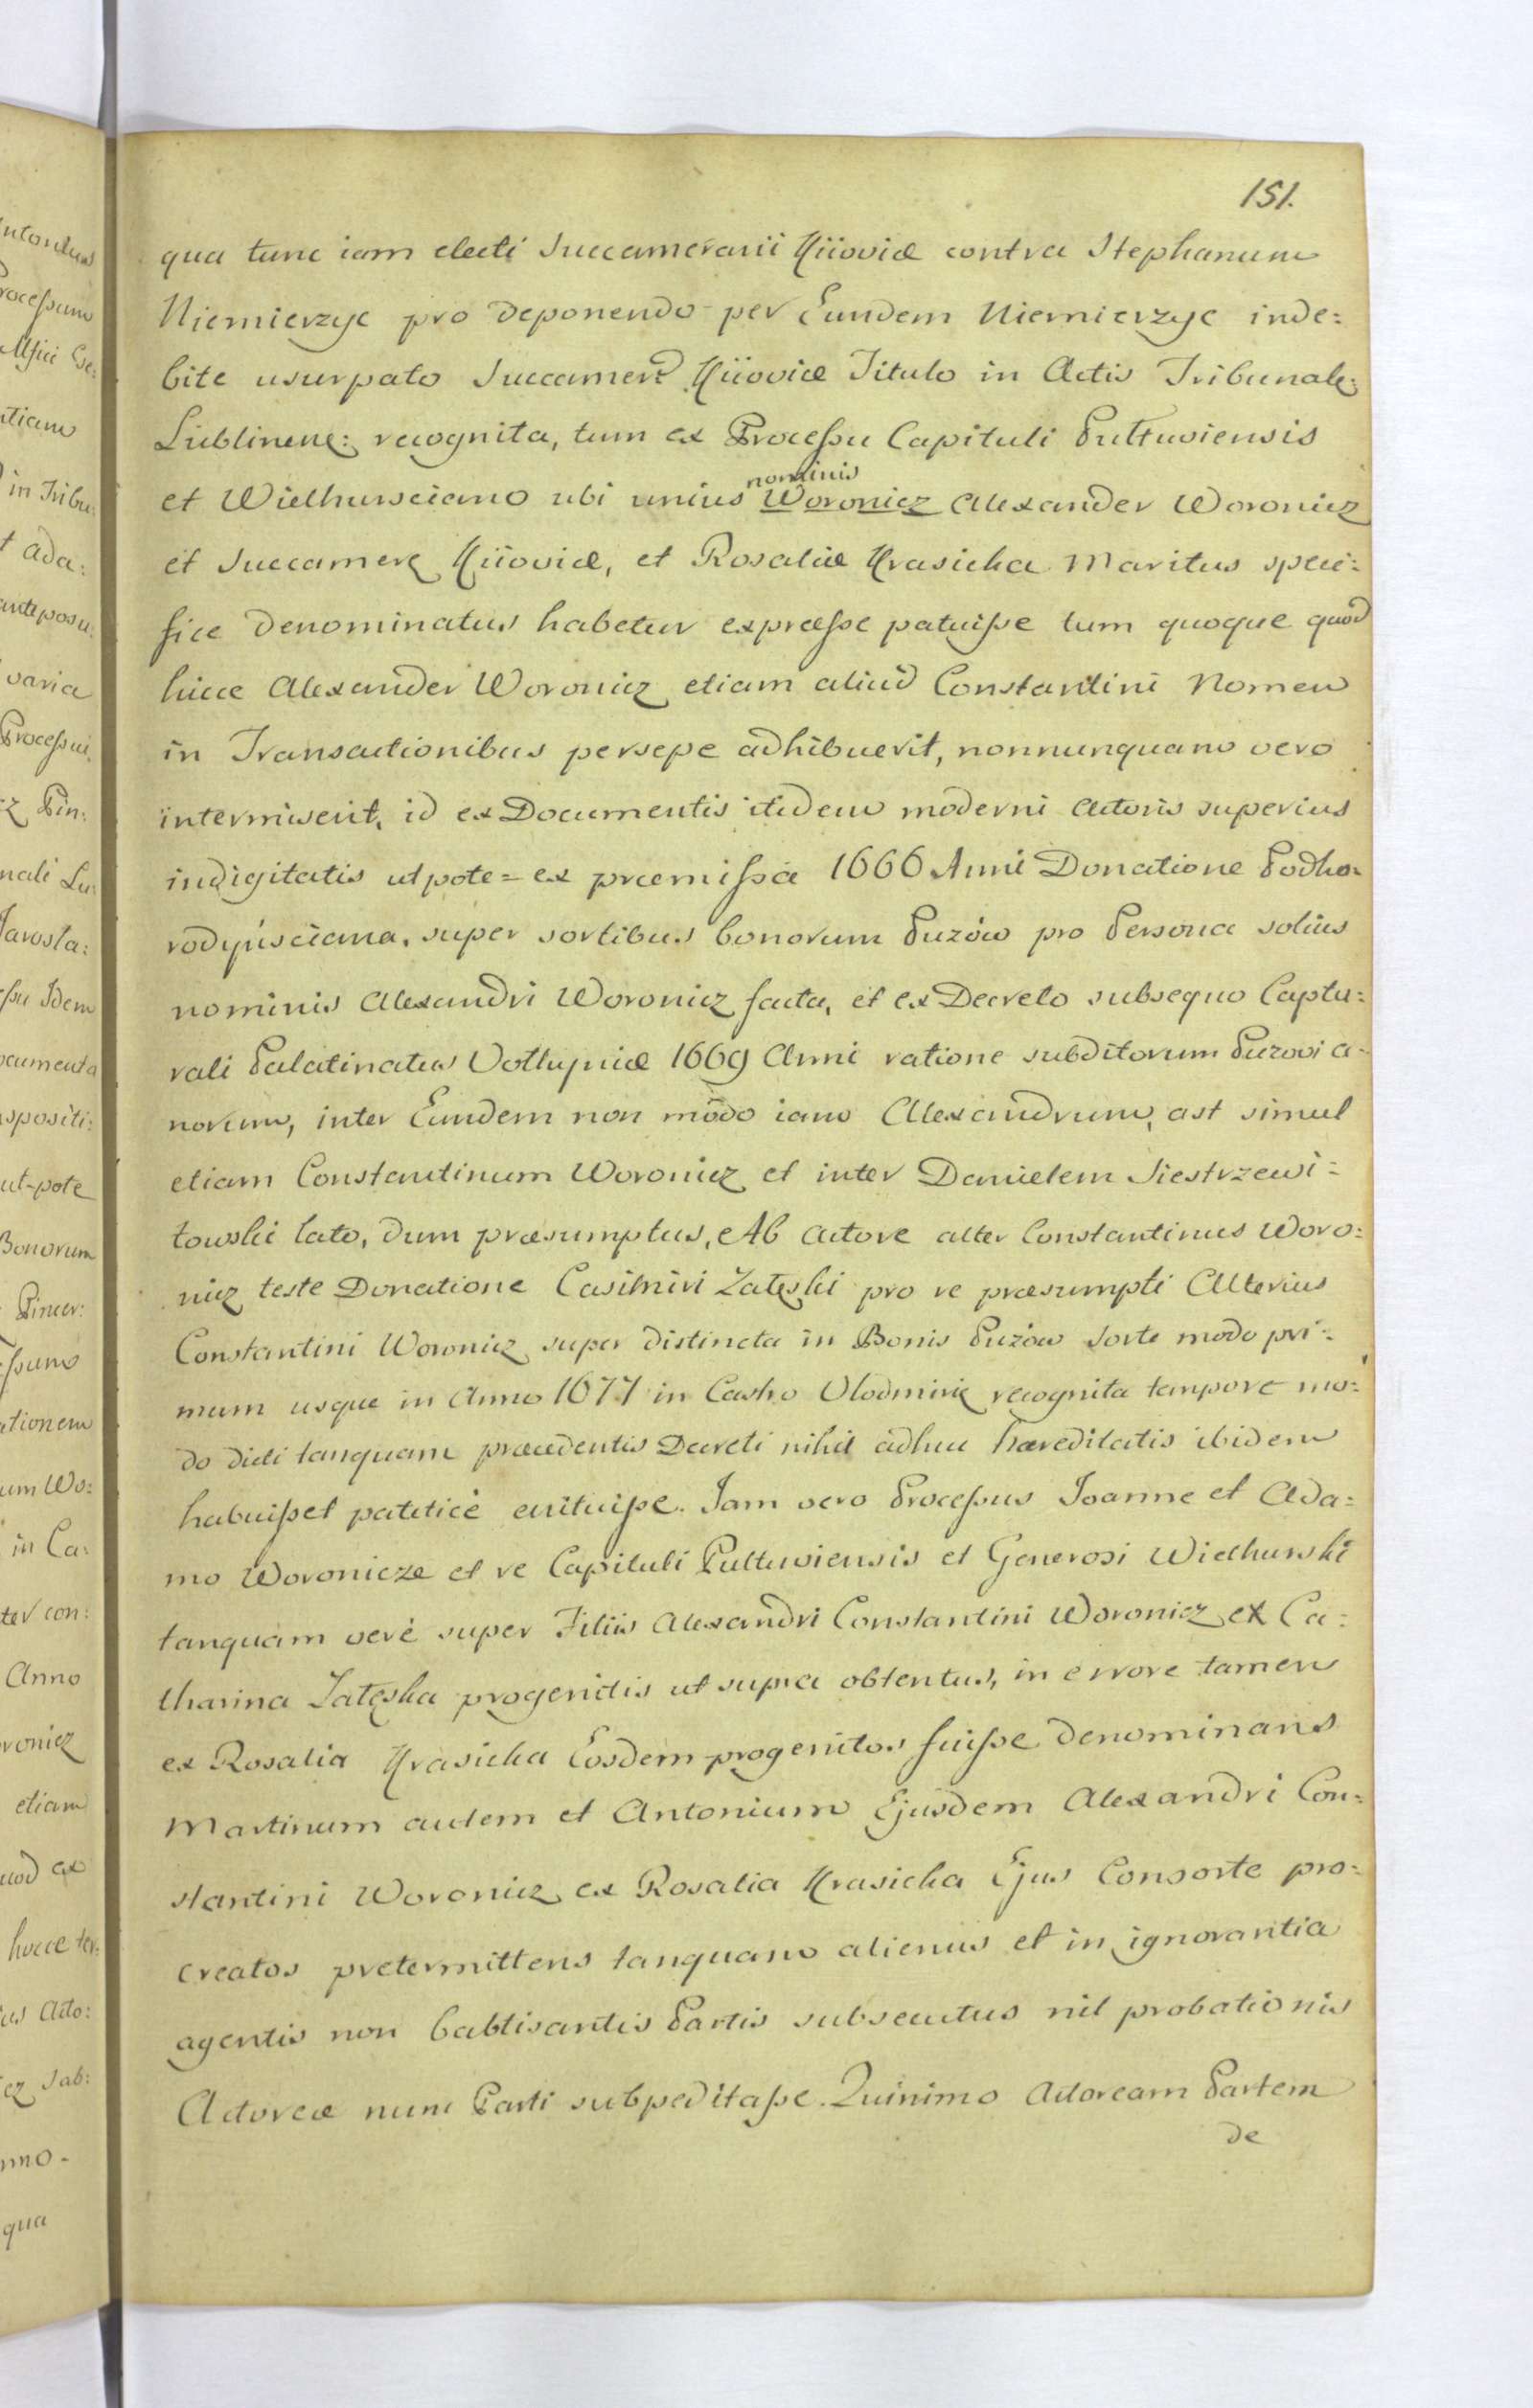 151.
qua tunc iam electi Succamerarii Kiioviæ contra Stephanum
Niemierzyc pro deponendo per Eundem Niemierzyc inde:
bite usurpato Succamerê Kiioviæ Titulo in Actis Tribunal:
Lublinen: recognita, tum ex Processu Capituli Pultuviensis
nominis
et Wielhursciano ubi unius Woronicz Alexander Woronicz
et Succamer Kiioviæ, et Rosaliæ Krasicka Maritus speci:
fice denominatus habetur expræsse patuisse tum quoque quod
hicce Alexander Woronicz etiam aliud Constantini Nomen
in Transactionibus persepe adhibuerit, nonnunquam vero
intermiserit, id ex Documentis itidem moderni Actoris superius
indigitatis utpote = ex præmissa 1666 Anni Donatione Podho:
rodyńsciana, super sortibus bonorum Puzów pro Persona solius
nominis Alexandri Woronicz facta, et ex Decreto subsequo Captu:
rali Palatinatus Volhyniæ 1669 Anni ratione subditorum Puzovia-
norum, inter Eundem non modo iam Alexandrum, ast simul
etiam Constantinum Woronicz et inter Danielem Siestrzewi=
towski lato, dum præsumptus, Ab Actore alter Constantinus Woro:
nicz teste Donatione Casimiri Załęski pro re præsumpti Alterius
Constantini Woronicz super distincta in Bonis Puzów Sorte modo pri:
mum usque in Anno 1677 in Castro Vlodmirię recognita tempore mo:
do dicti tanquam præcedentis Decreti nihil adhuc hæreditatis ibidem
habuisset pateticè enituisse. Jam vero Processus Joanne et Ada=
mo Woronicze et re Capituli Pultuviensis et Generosi Wielhurski
tanquam verè super Filiis Alexandri Constantini Woronicz ex Ca:
tharina Załęska progenitis ut supra obtentus, in errore tamen
ex Rosalia Krasicka Eosdem progenitos fuisse denominans
Martinum autem et Antonium Ejusdem Alexandri Con:
stantini Woronicz ex Rosalia Krasicka Ejus Consorte pro:
creatos pretermittens tanquam alienus et in ignorantia
agentis non babtisantis Partis subsecutus nil probationis
Actoreæ nunc Parti subpeditasse. Quinimo Actoream Partem
de